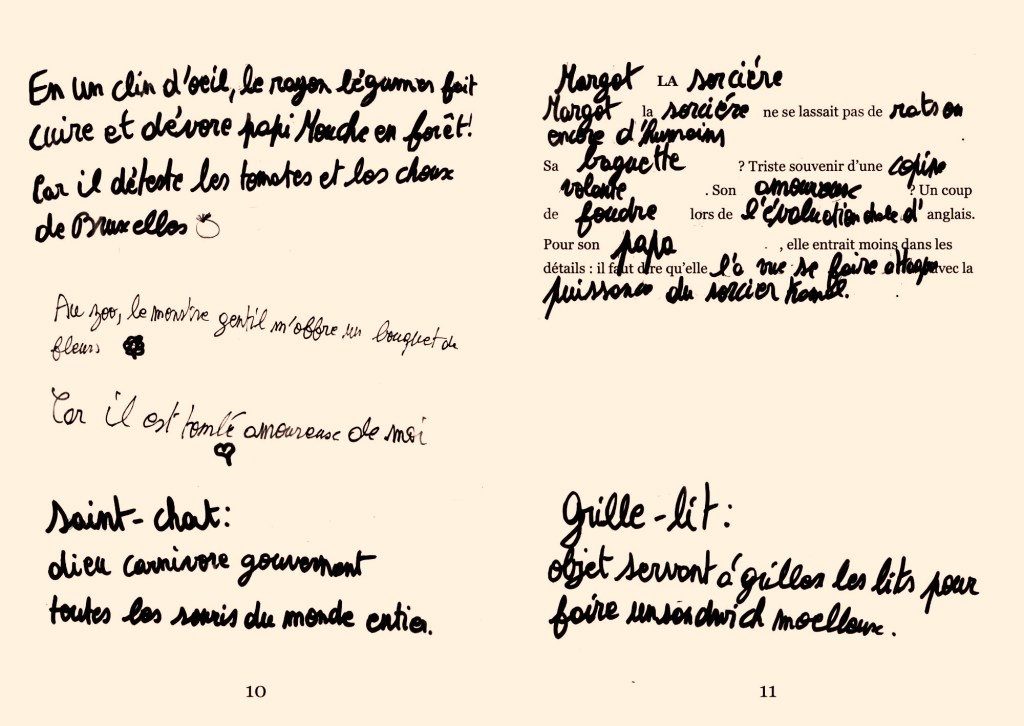 En un clin d'oeil, le rayon légumes fait
cuire et dévore papi Mouche en forêt!
Car il déteste les tomates et les choux
de Bruxelles
Au zoo, le monstre gentil m'offre un bouquet de
fleurs
Car il est tombé amoureuse de moi
Saint-chat:
dieu carnivore gouvernant
toutes les souris du monde entier.
10
Margot LA sorcière
Margot la sorcière ne se lassait pas de rats ou
encore d'humains
Sa baguette ? Triste souvenir d'une copine
volante . Son amoureuse ? Un coup
de foudre lors de l'évaluation orale d' anglais.
Pour son papa , elle entrait moins dans les
détails : il faut dire qu'elle l'a vue se faire attaque avec la
puissance du sorcier
Grille-lit:
objet servant à griller les lits pour
faire un sandwich moelleux.
11